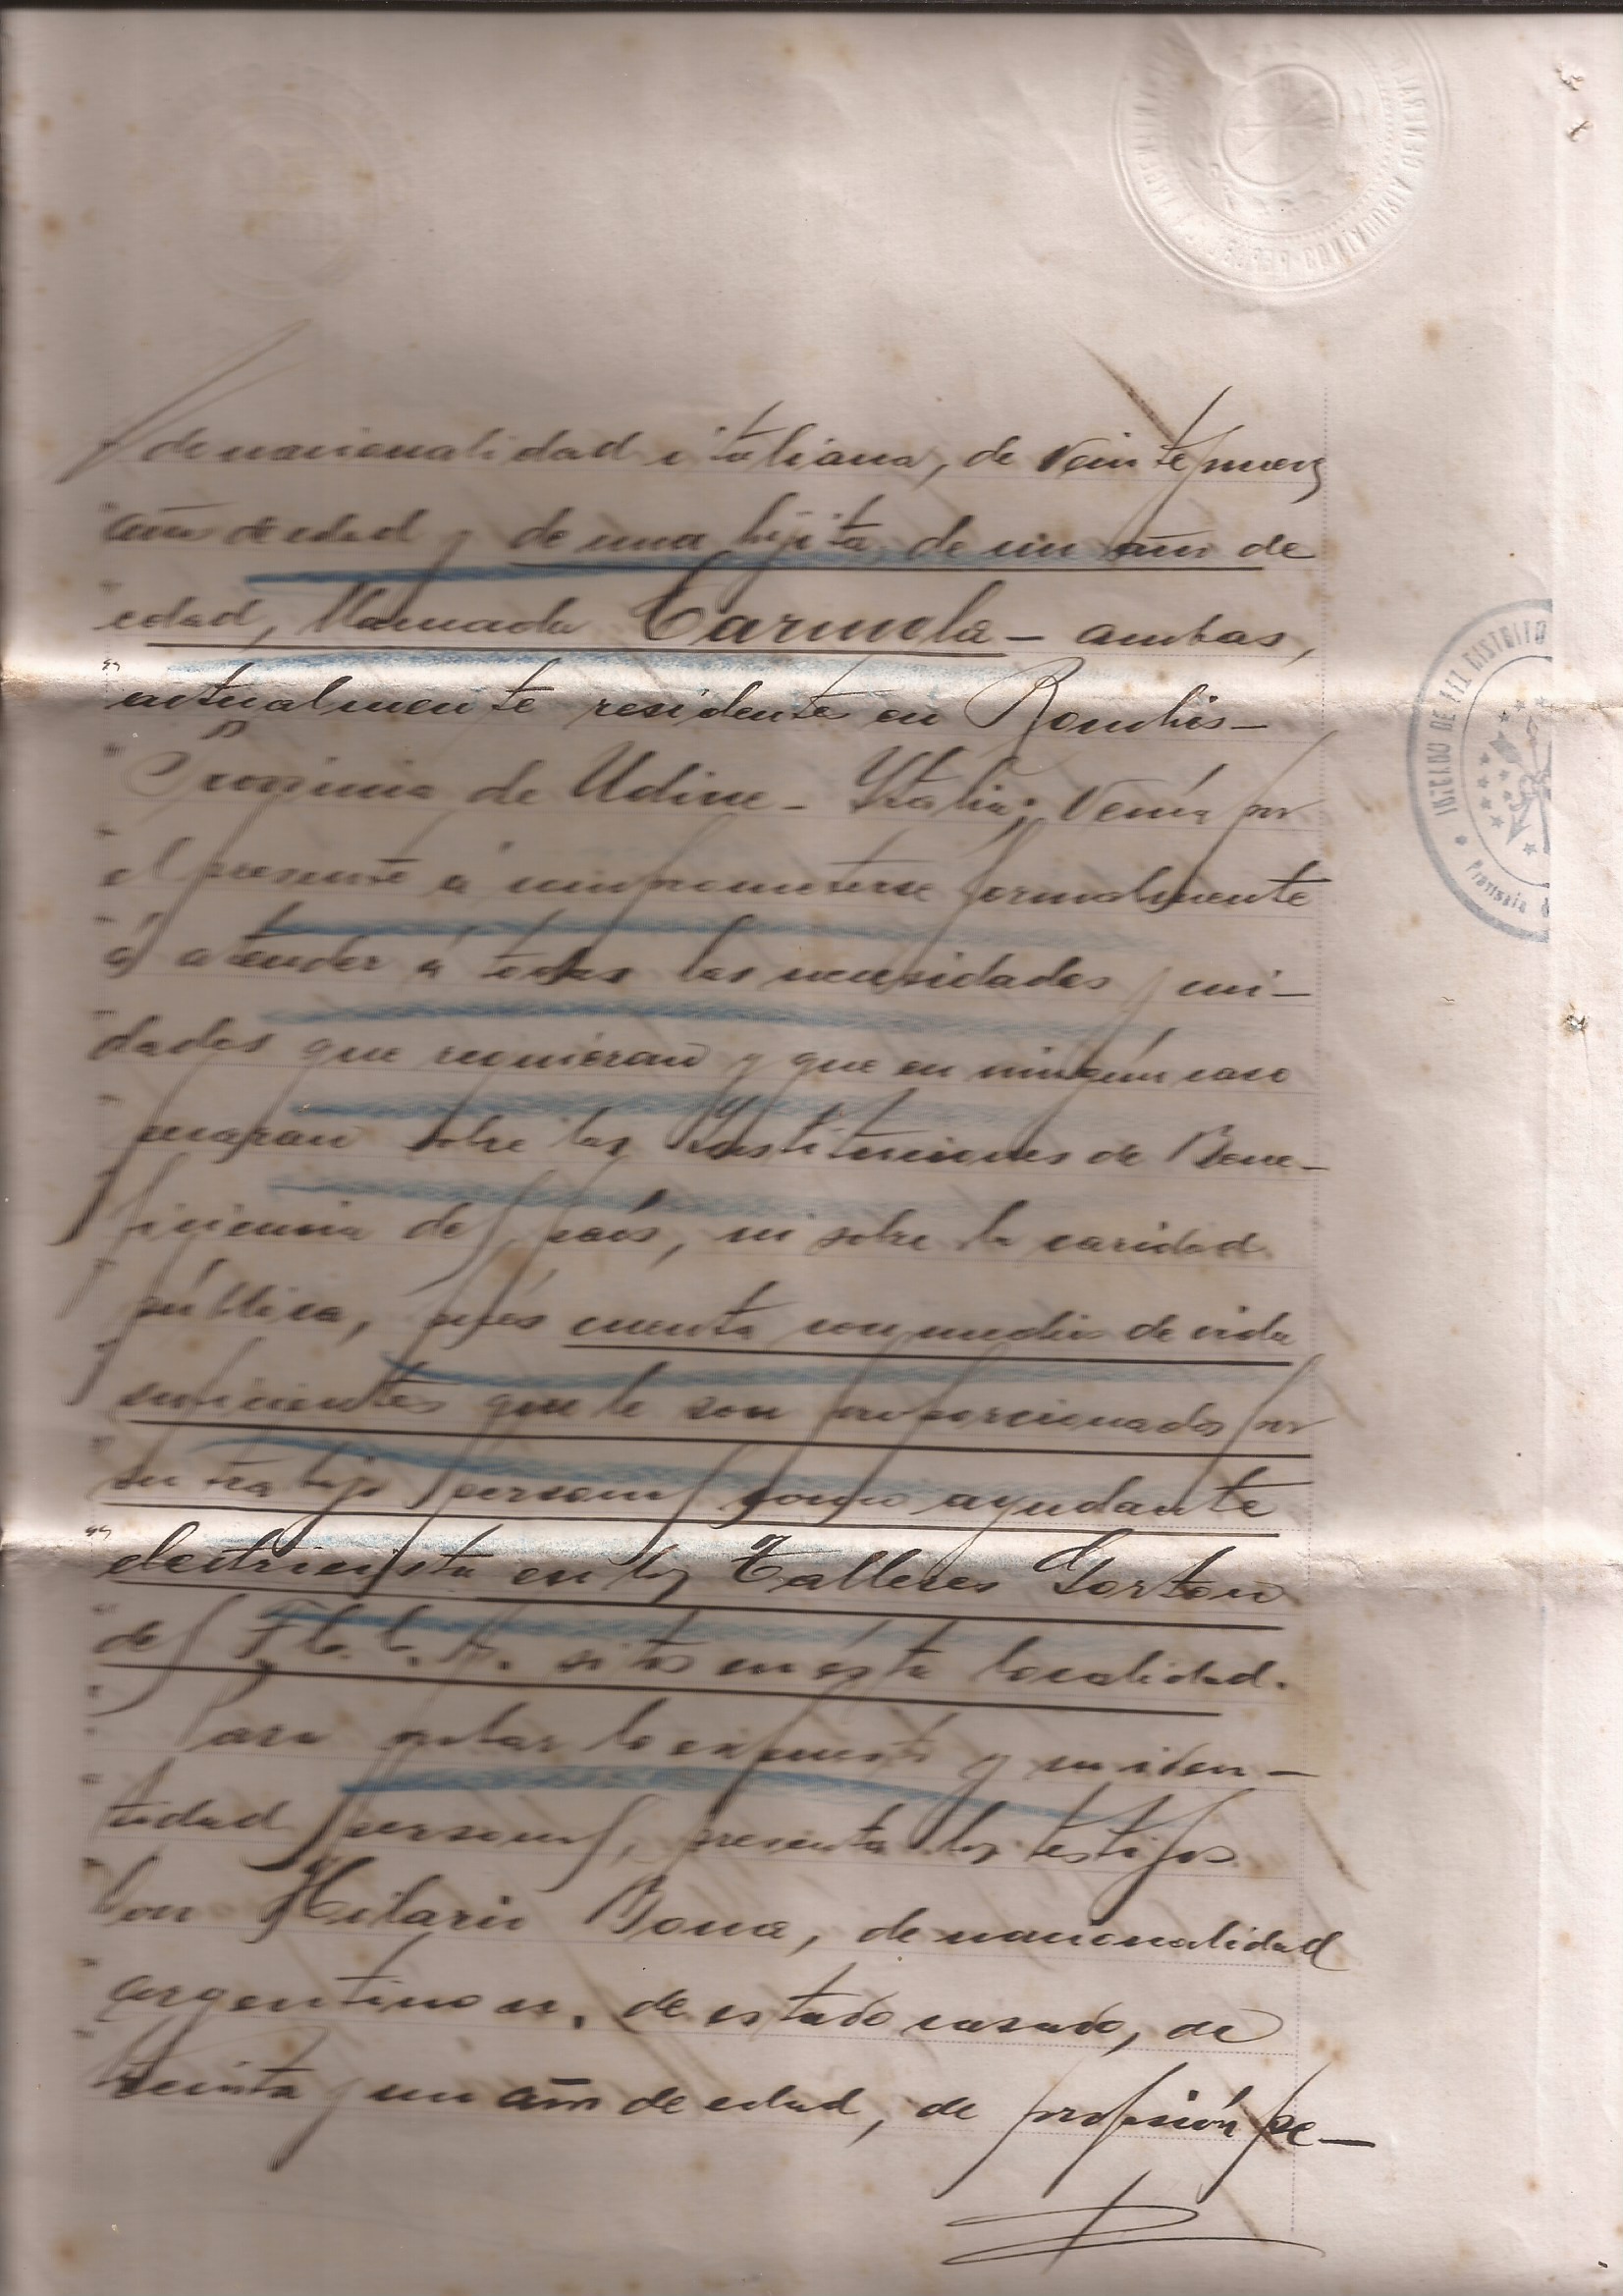 de nacionalidad italiana, de veintinueve
años de edad y de una hijita, de un año de
edad, llamada Carmela - ambas,
actualmente residentes en Ronchis -
Provincia de Udine - Italia; venía por
el presente á comprometerse formalmente
á atender á todas las necesidades y cui-
dados que requieran y que en ningún caso
pesaran sobre las Instituciones de Bene-
ficiencia del país, ni sobre la caridad
pública, pués cuenta con medios de vida
suficientes que le son proporcionados por
su trabajo personal como ayudante
electricista en los Talleres Gorton
del F. C. C. A. sitos en ésta localidad.
Para probar lo expuesto y su iden-
tidad personal, presenta los testigos
Don Hilario Bona, de nacionalidad
argentino n. de estado casado, de
treinta y un años de edad, de profesión pe-
JUZGADO DE PAZ DISTRITO
Provincia